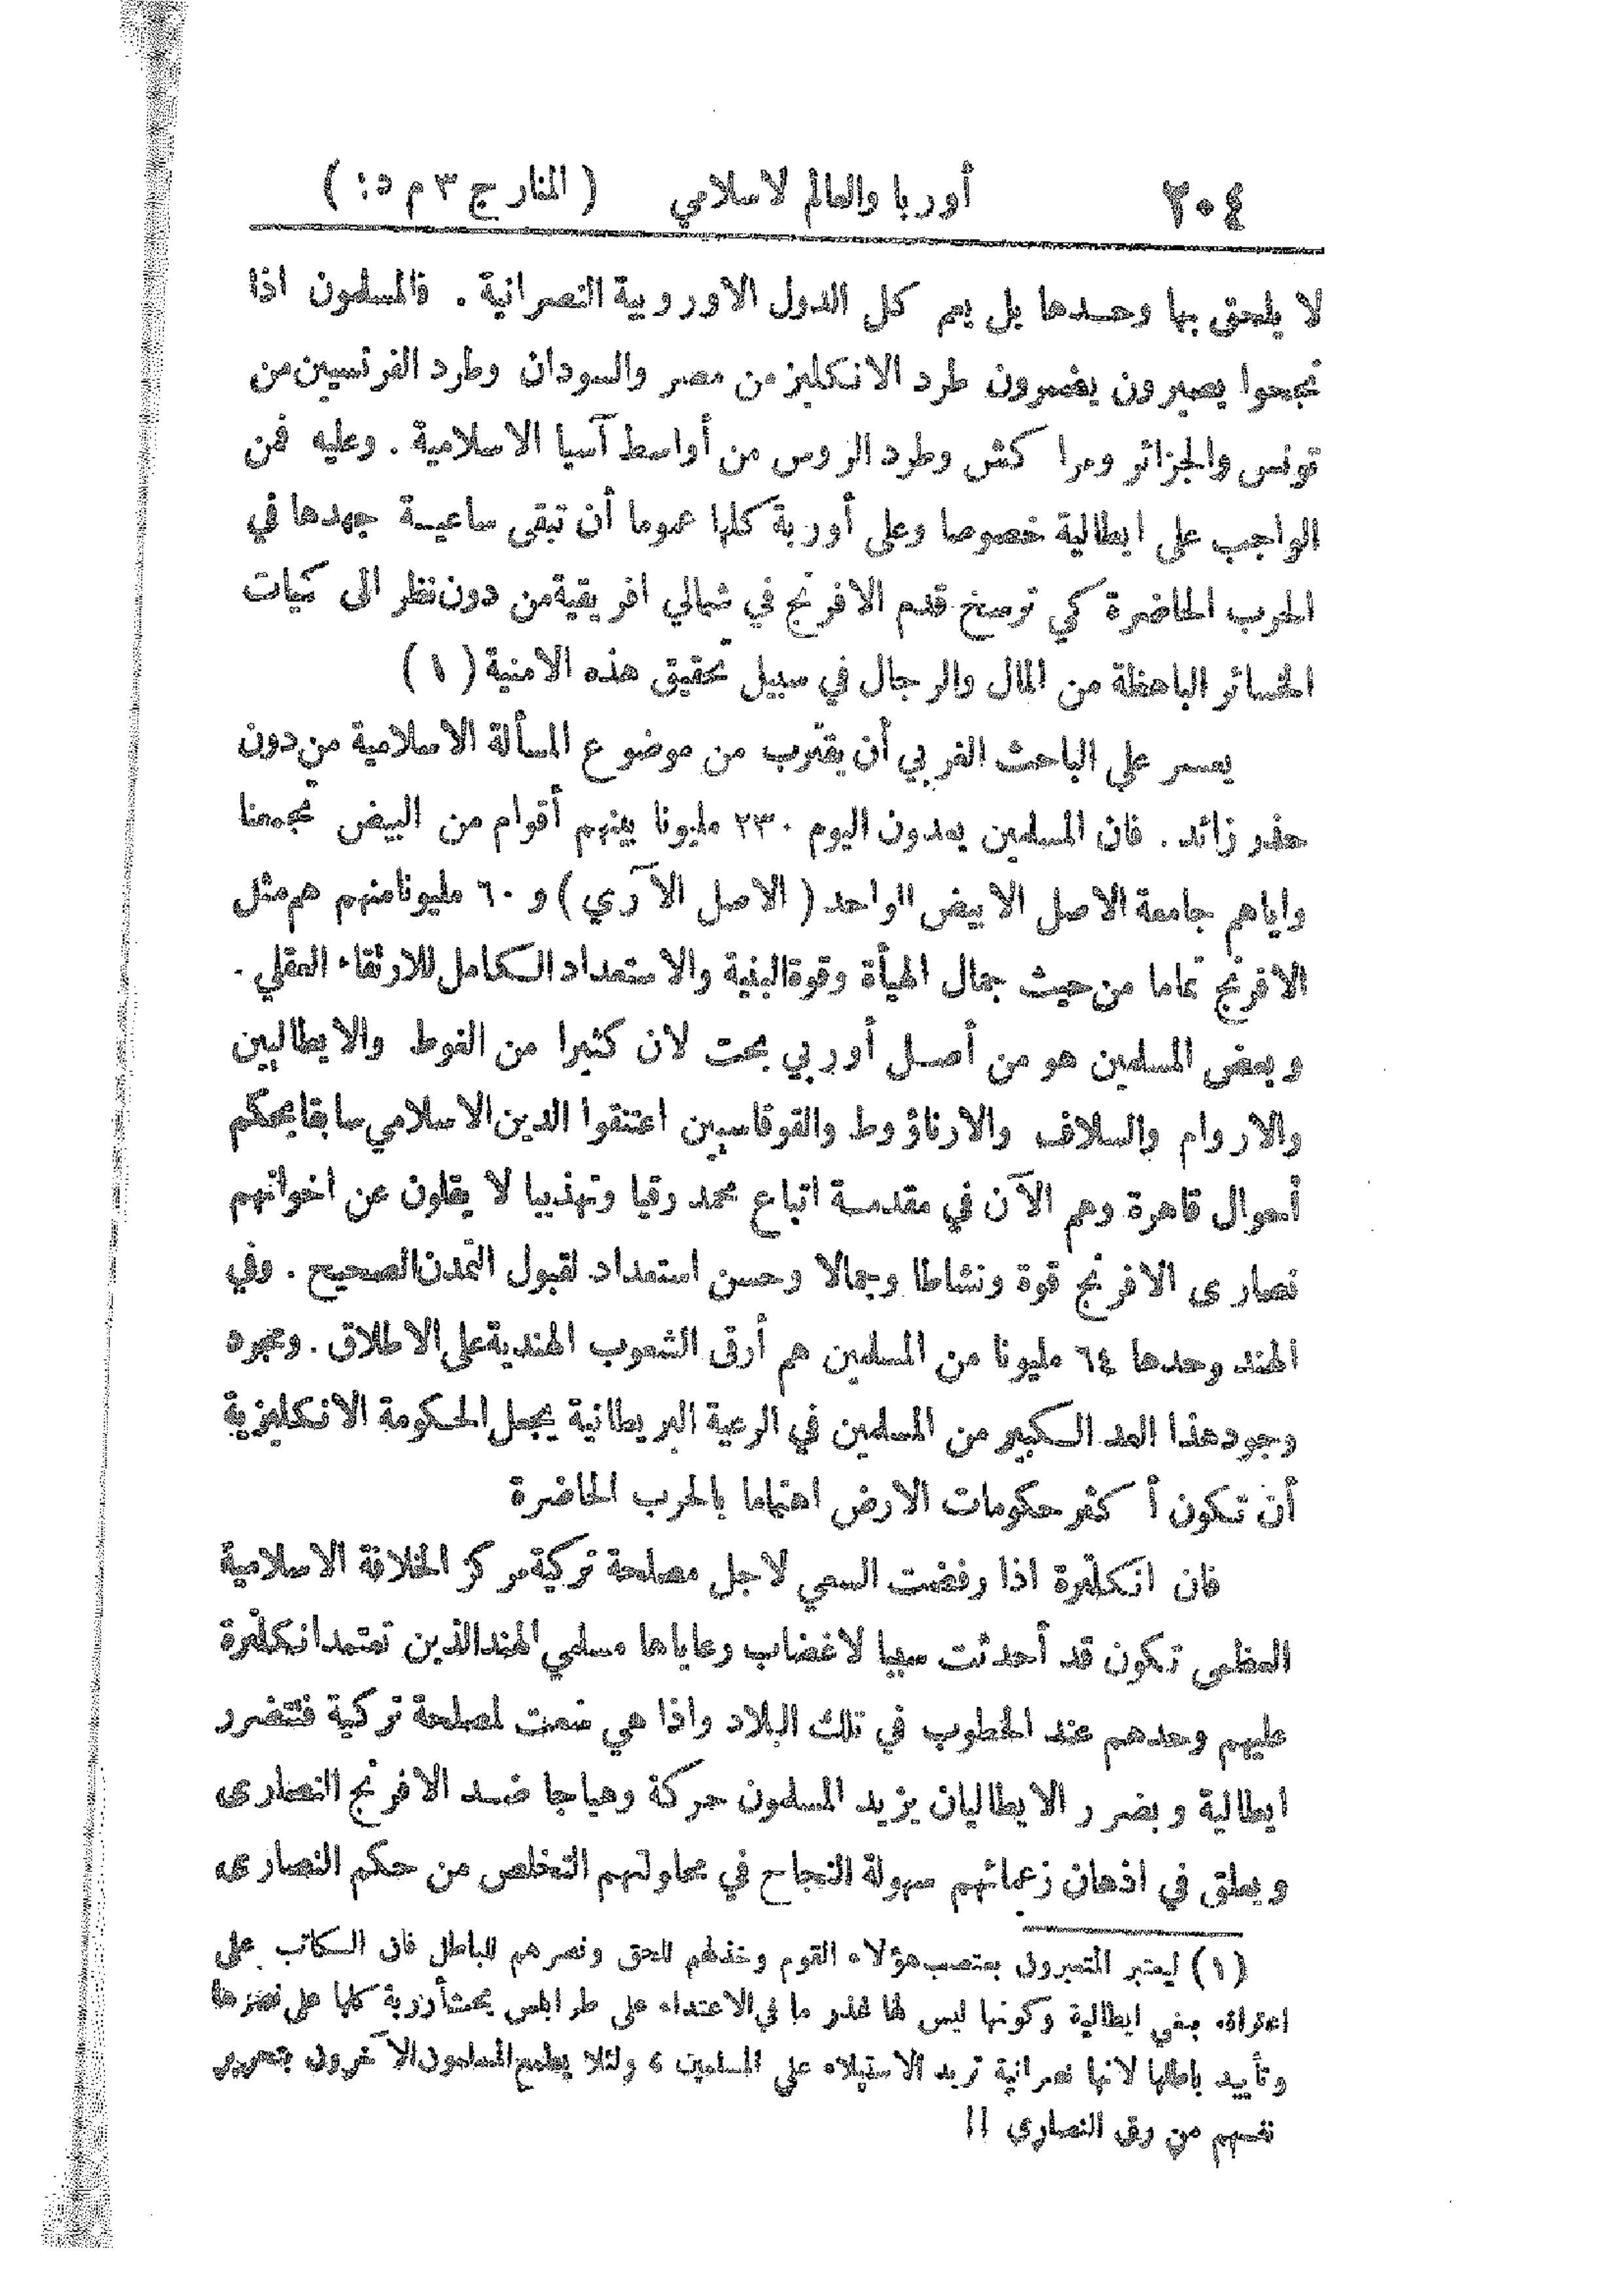 ٢٠٤ أوربا والعالم لاسلامي ( المنار ج ٣ م
لا يلحق بها وحدها بل يعم كل الدول الاوروبية النصرانية . فالمسلمون اذا
نجحوا يصيرون يضمرون طرد الانكليز من مصر والسودان وطرد الفرنسيين من
تونس والجزائر ومراكش وطرد الروس من أواسط آسيا الاسلامية . وعليه فمن
الواجب على ايطالية خصوصا وعلى أوربة كلها عموما أن تبقى ساعية جهدها في
الحرب الحاضرة كي ترسخ قدم الافرنج في شمالي افريقية من دون نظر الى كميات
الخسائر الباهظة من المال والرجال في سبيل تحقيق هذه الامنية ( ١ )
يعسر على الباحث الغربي أن يقترب من موضوع المسألة الاسلامية من دون
حذر زائد . فان المسلمين يعدون اليوم ٢٣٠ مليونا بينهم أقوام من البيض تجمعنا
واياهم جامعة الاصل الابيض الواحد ( الاصل الآري ) و ٦٠ مليونا منهم هم مثل
الافرنج تماما من حيث جمال الهيأة وقوة البنية والاستعداد الكامل للارتقاء العقلي .
وبعض المسلمين هو من أصل أوربي بحت لان كثيرا من الغوط والايطاليين
والاروام والسلاف والارناؤوط والقوقاسيين اعتنقوا الدين الاسلامي سابقا بحكم
أحوال قاهرة وهم الآن في مقدمة اتباع محمد رقيا وتهذيبا لا يقلون عن اخوانهم
نصارى الافرنج قوة ونشاطا وجمالا وحسن استعداد لقبول التمدن الصحيح . وفي
الهند وحدها ٦٤ مليونا من المسلمين هم أرقى الشعوب الهندية على الاطلاق . ومجرد
وجود هذا العدد الكبير من المسلمين في الرعية البريطانية يجعل الحكومة الانكليزية
أن تكون أكثر حكومات الارض اهتماما بالحرب الحاضرة
فان انكلترة اذا رفضت السعي لاجل مصلحة تركية مركز الخلافة الاسلامية
العظمى تكون قد أحدثت سببا لاغضاب رعاياها مسلمي الهند الذين تعتمد انكلترة
عليهم وحدهم عند الخطوب في تلك البلاد واذا هي سعت لمصلحة تركية فتتضرر
ايطالية وبضرر الايطاليان يزيد المسلمون حركة وهياجا ضد الافرنج النصارى
ويعلق في اذهان زعمائهم سهولة النجاح في محاولتهم التخلص من حكم النصارى
(١) ليعتبر المعتبرون بتعصب هؤلاء القوم وخذلهم للحق ونصرهم للباطل فان الكاتب على
اعترافه ببغي ايطالية وكونها ليس لها عذر ما في الاعتداء على طرابلس يحث أوربة كلها على نصرها
وتأييد باطلها لانها نصرانية تريد الاستيلاء على المسلمين ، ولئلا يطمع المسلمون الآخرون بتحرير
نفسهم من رق النصارى !!